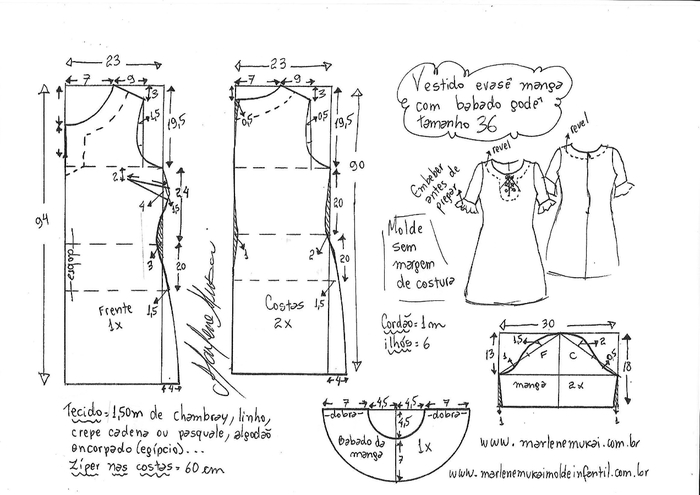 23
7
9
3
1,5
19,5
94
2
24
4
1,5
3
20
dobra
1,5
Frente
1x
4
23
7
9
3
0,5
0,5
19,5
90
20
1
2
20
1,5
Costas
2x
4
Marlene Mukai
Vestido evasê manga
com babado godê
tamanho 36
revel
revel
Embeber
antes de
pregar
Molde
sem
margem
de costura
Cordão = 1m
ilhós = 6
30
13
1,5
2
1
F
C
0,5
18
manga
2x
1
1
7
4,5
4,5
7
dobra
4,5
dobra
Babado da
manga
1x
7
Tecido = 1,50m de chambray, linho,
crepe cadena ou pasquale, algodão
encorpado (egípcio)...
Zíper nas costas = 60 cm
www.marlenemukai.com.br
www.marlenemukaimoldeinfantil.com.br